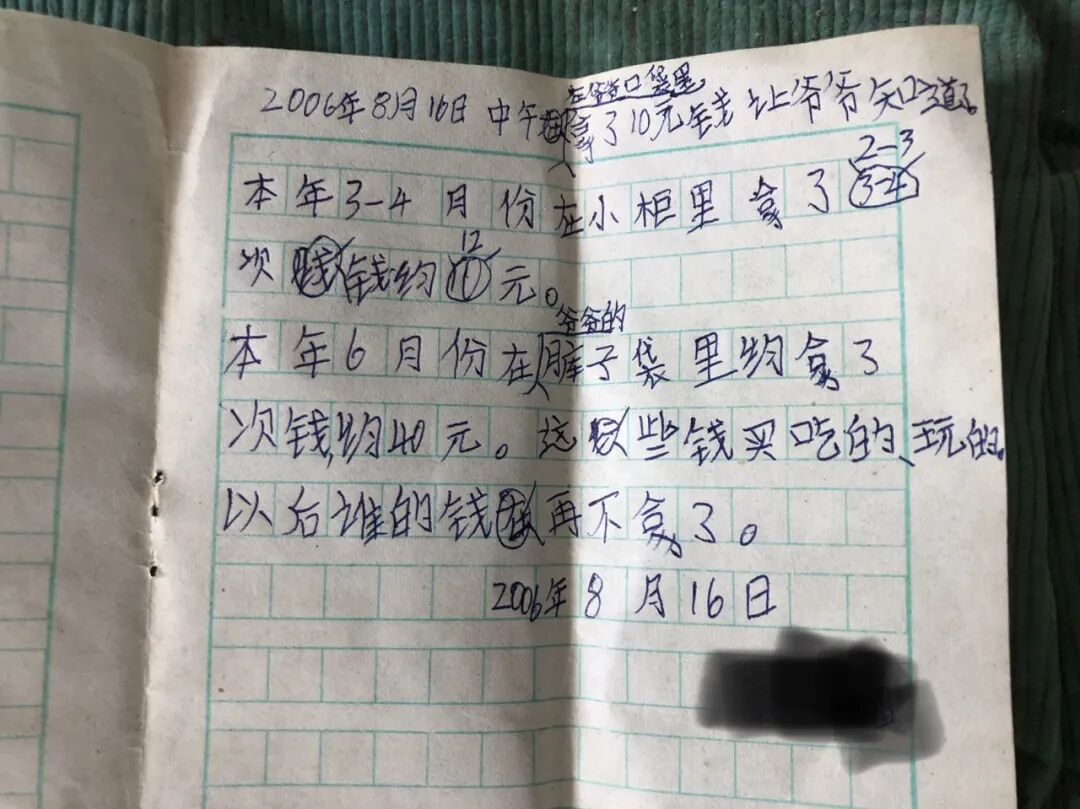 在爷爷口袋里
2006年8月16日 中午拿了10元钱 让爷爷知道了。
2-3
本年3-4月份在小柜里拿了3-4
12
次钱约11元。
爷爷的
本年6月份在裤子袋里约拿了
次钱,约40元。这些钱买吃的、玩的。
以后谁的钱再不拿了。
2006年8月16日